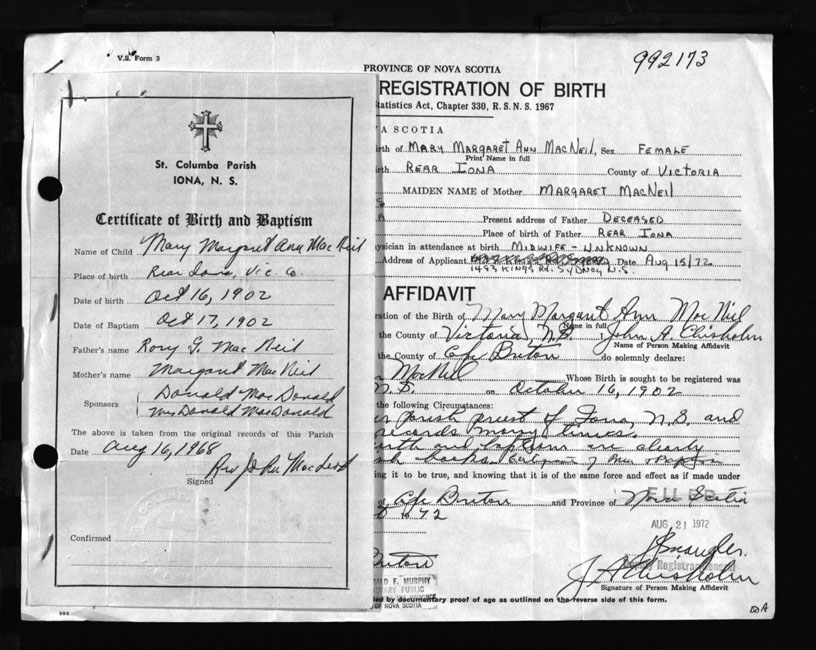 V.S. Form 3
992173
PROVINCE OF NOVA SCOTIA
REGISTRATION OF BIRTH
tatistics Act, Chapter 330, R.S.N.S. 1967
VA SCOTIA
irth of MARY MARGARET ANN MACNEIL, Sex FEMALE
Print Name in full
irth REAR IONA County of VICTORIA
MAIDEN NAME of Mother MARGARET MACNEIL
S
A Present address of Father DECEASED
Place of birth of Father REAR IONA
ysician in attendance at birth MIDWIFE - UNKNOWN
Address of Applicant Date AUG 15/72
1493 KINGS RD. SYDNEY N.S.
AFFIDAVIT
ration of the Birth of Mary Margaret Ann MacNeil
Name in full
the County of Victoria, N.S. John A. Chisholm
Name of Person Making Affidavit
the County of Cape Breton do solemnly declare:
MacNeil Whose Birth is sought to be registered was
N.S. on October 16, 1902
the following Circumstances:
parish priest of Iona, N.S. and
records many times.
birth and baptism are clearly
ng it to be true, and knowing that it is of the same force and effect as if made under
of Cape Breton and Province of Nova Scotia
FILED
72
AUG. 21 1972
Deputy Registrar General
Breton
J A Chisholm
Signature of Person Making Affidavit
ALD F. MURPHY
NOTARY PUBLIC
OF NOVA SCOTIA
ied by documentary proof of age as outlined on the reverse side of this form.
St. Columba Parish
IONA, N. S.
Certificate of Birth and Baptism
Name of Child Mary Margaret Ann MacNeil
Place of birth Rear Iona, Vic. Co.
Date of birth Oct 16, 1902
Date of Baptism Oct 17, 1902
Father's name Rory G. MacNeil
Mother's name Margaret MacNeil
Sponsors Donald MacDonald
Mrs Donald MacDonald
The above is taken from the original records of this Parish
Date Aug 16, 1968
Rev John MacLeod
Signed
Confirmed